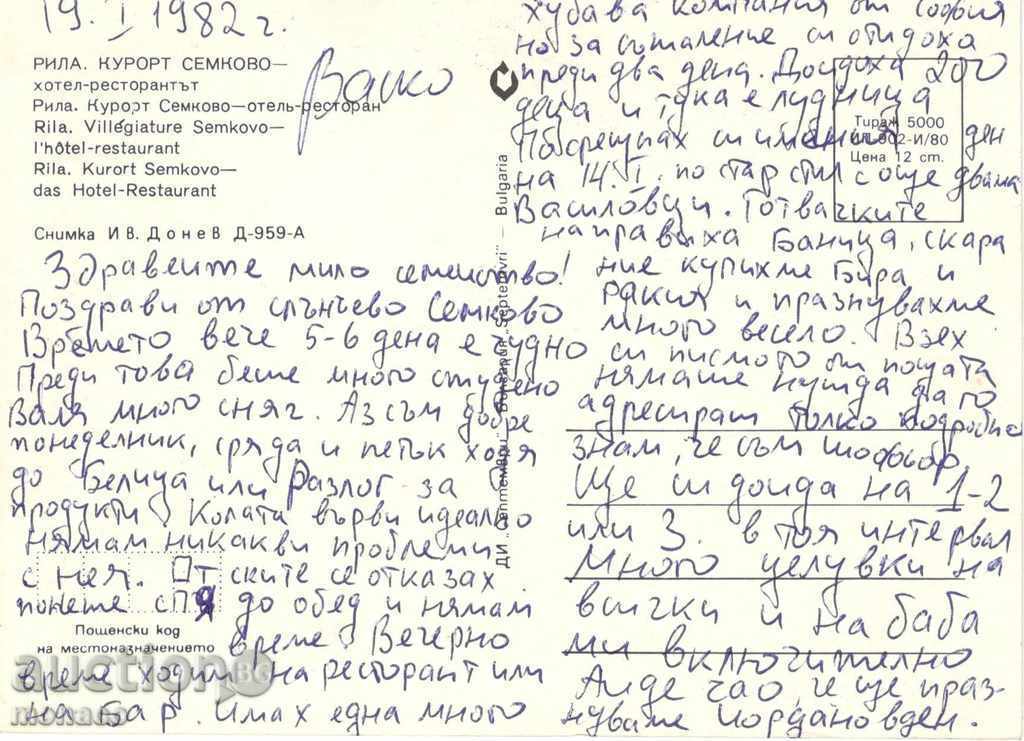 19. I 1982 г.
РИЛА. КУРОРТ СЕМКОВО—
хотел-ресторантът
Рила. Курорт Семково—отель-ресторан
Rila. Villégiature Semkovo—
l'hôtel-restaurant
Rila. Kurort Semkovo—
das Hotel-Restaurant
Васко
Снимка Ив. Донев Д-959-А
Здравейте мило семейство!
Поздрави от слънчево Семково
Времето вече 5-6 дена е чудно
Преди това беше много студено
Валя много сняг. Аз съм добре
понеделник, сряда и петък ходя
до Белица или Разлог за
продукти. Колата върви идеално
нямам никакви проблеми
с нея. От ските се отказах
понеже спя до обед и нямам
време. Вечерно
време ходим на ресторант или
на бар. Имах една много
Пощенски код
на местоназначението
ДИ „Септември“ Bulgarien „Septemvri“ — Bulgaria
хубава компания от София
но за съжаление си отидоха
преди два дена. Дойдоха 200
деца и тука е лудница
Посрещнах си имения ден
на 14. I. по стар стил с още двама
Василовци. Готвачките
направиха баница, скара
ние купихме бира и
ракия и празнувахме
много весело. Взех
си писмото от пощата
нямаше нужда да го
адресират толко подробно
знам, че съм шофьор.
Ще си дойда на 1-2
или 3. в тоя интервал
Много целувки на
всички и на баба
ми включително
Айде чао, че ще праз-
нуваме йордановден.
Тираж 5000
И/80
Цена 12 ст.
auction.bg
monaco